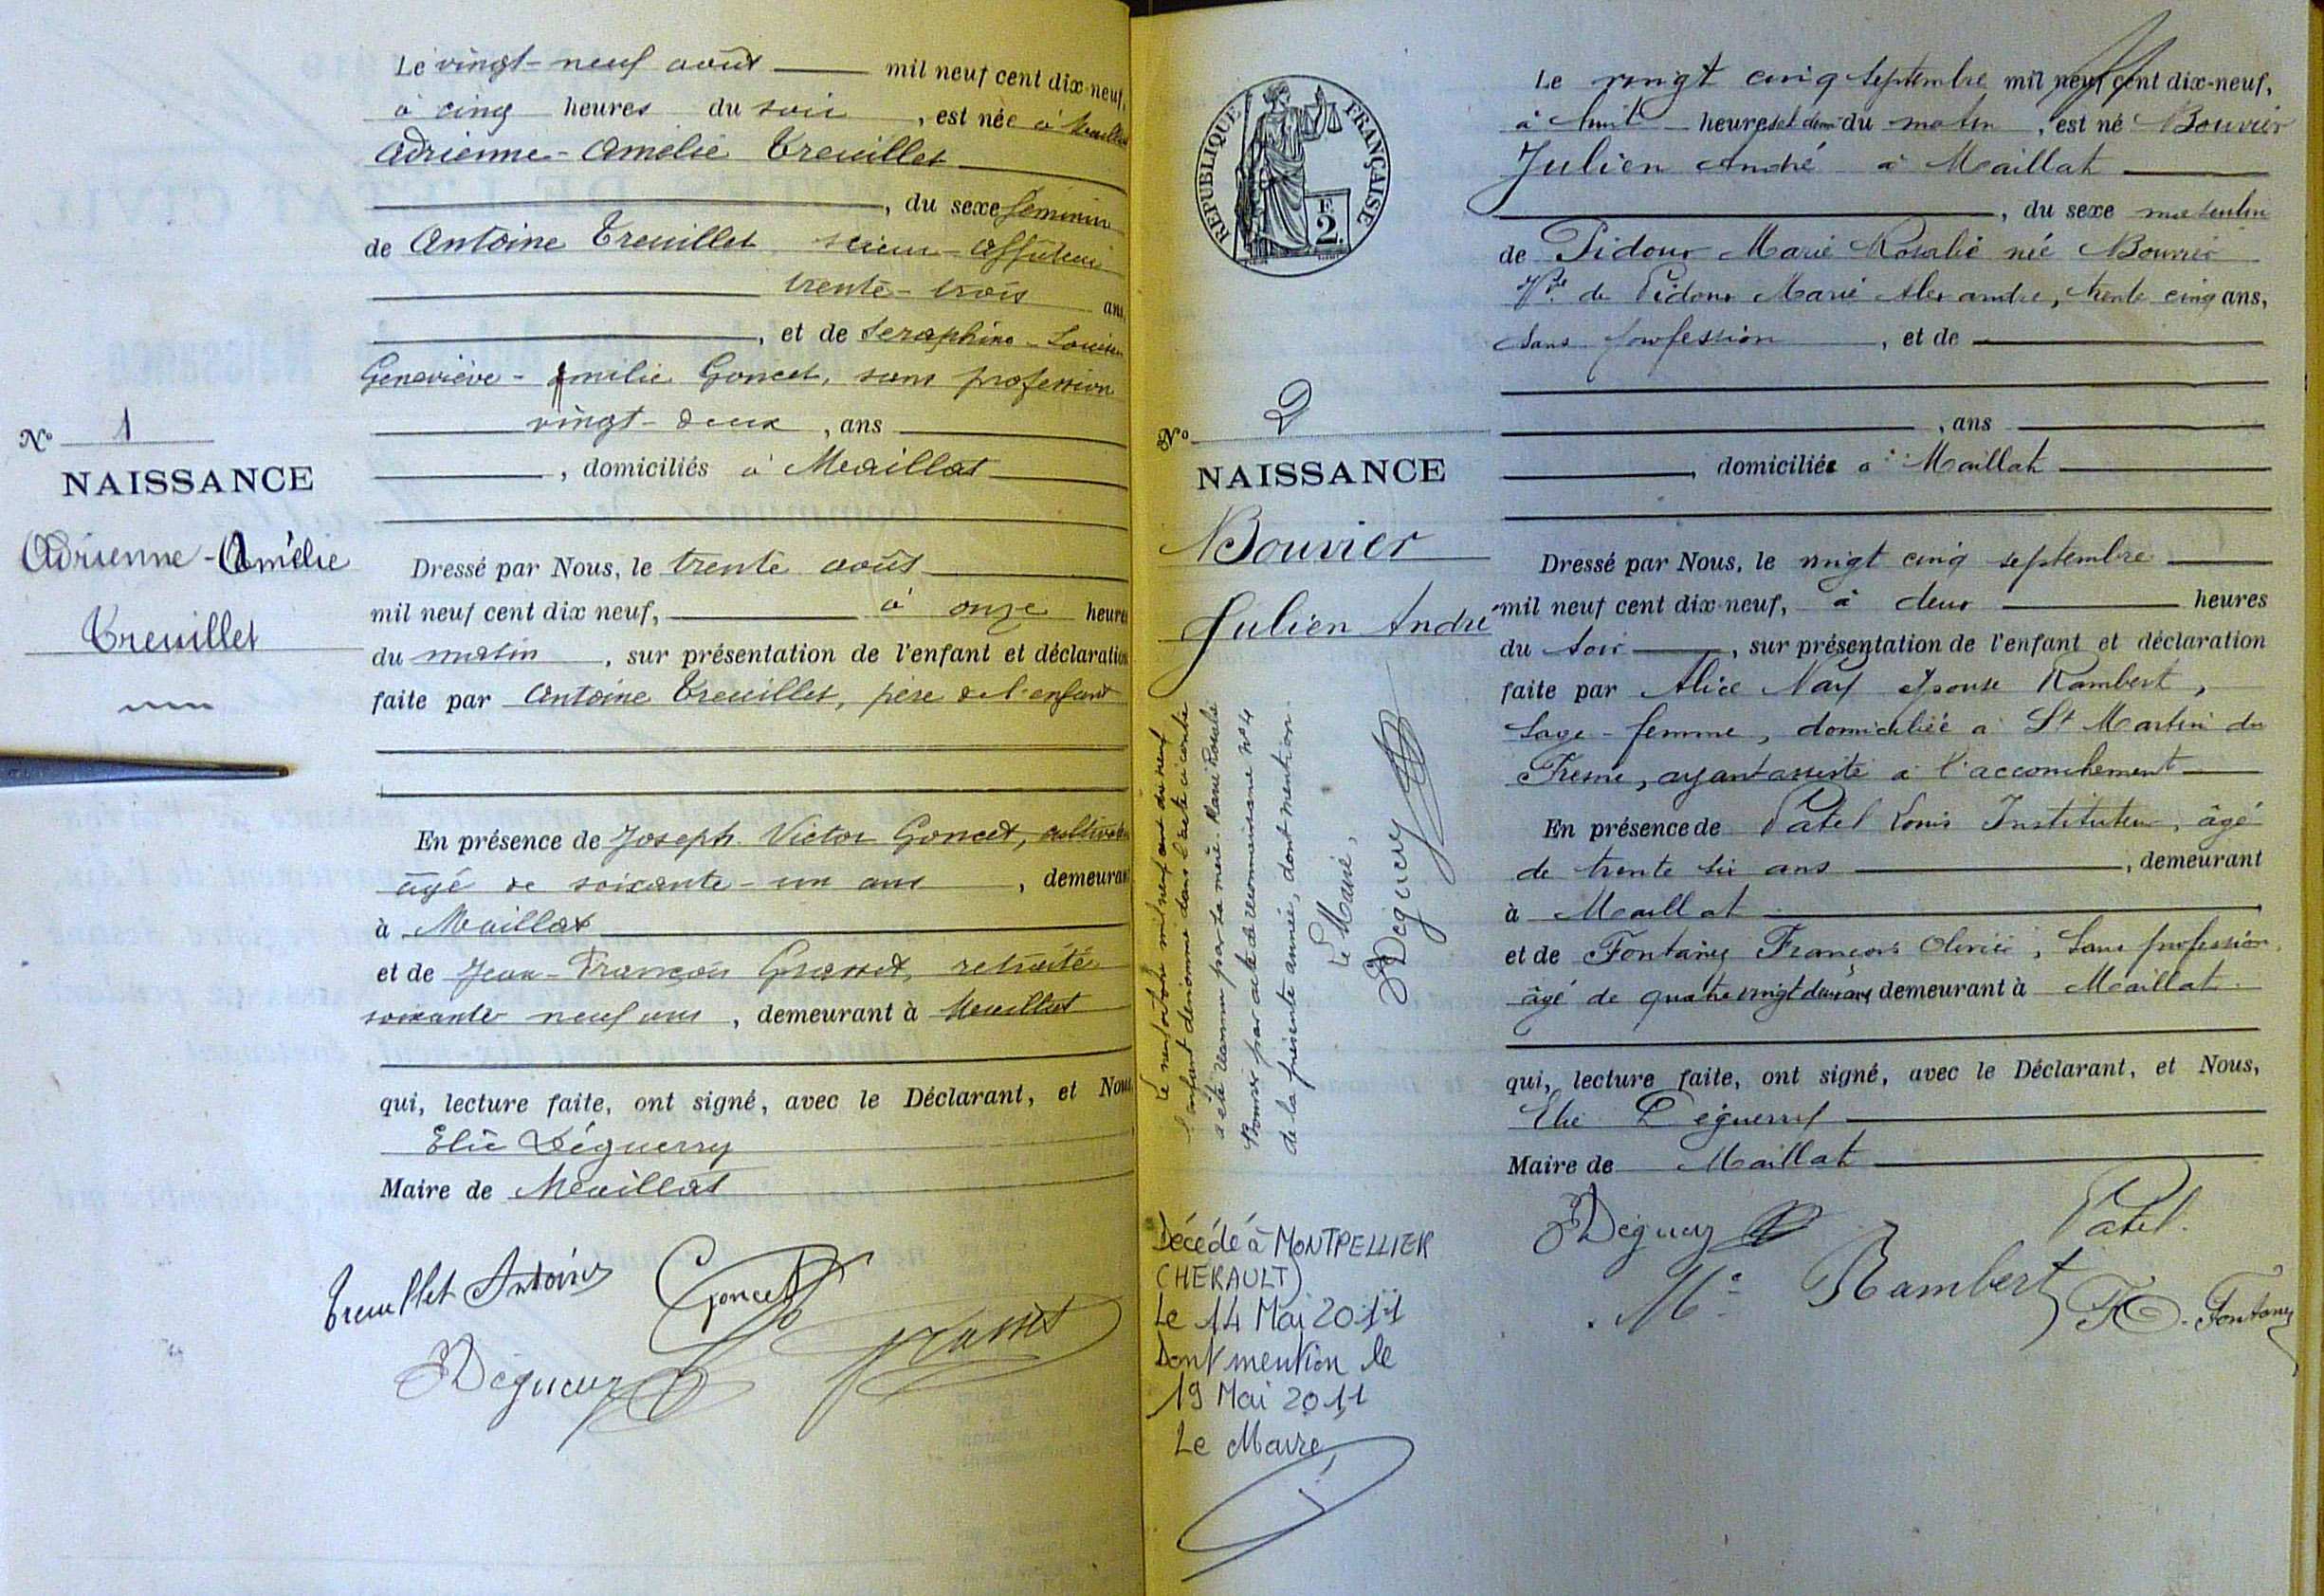 Le vingt-neuf août mil neuf cent dix-neuf,
à cinq heures du soir, est née à Maillat
Adrienne-Amélie Treuillet
, du sexe féminin
de Antoine Treuillet, scieur-affûteur
trente-trois ans
, et de Séraphine-Louise
Geneviève-Amélie Goncet, sans profession
vingt-deux, ans
, domiciliés à Maillat
No 1
NAISSANCE
Adrienne-Amélie
Treuillet
Dressé par Nous, le trente août
mil neuf cent dix neuf, à onze heures
du matin, sur présentation de l'enfant et déclaration
faite par Antoine Treuillet, père de l'enfant
En présence de Joseph Victor Goncet, cultivateur
âgé de soixante-un ans, demeurant
à Maillat
et de Jean-François Grasset, retraité
soixante neuf ans, demeurant à Maillat
qui, lecture faite, ont signé, avec le Déclarant, et Nous
Elie Déguerry
Maire de Maillat
Treuillet Antoine Goncet
EDéguerry Grasset
REPUBLIQUE FRANÇAISE
F. 2.
No 2
NAISSANCE
Bouvier
Julien André
Le neuf octobre mil neuf cent dix neuf
l'enfant dénommé dans l'acte ci contre
a été reconnu par sa mère Marie Rosalie
Bouvier par acte de reconnaissance No 4
de la présente année, dont mention.
Le Maire,
EDéguerry
Décédé à MONTPELLIER
(HERAULT)
Le 14 Mai 2011
Dont mention le
19 Mai 2011
Le Maire,
Le vingt cinq septembre mil neuf cent dix-neuf,
à huit heures et demi du matin, est né Bouvier
Julien André à Maillat
, du sexe masculin
de Pidoux Marie Rosalie née Bouvier
Vve de Pidoux Marie Alexandre, trente cinq ans,
sans profession, et de
, ans
, domiciliée à Maillat
Dressé par Nous, le vingt cinq septembre
mil neuf cent dix-neuf, à deux heures
du soir, sur présentation de l'enfant et déclaration
faite par Alice épouse Rambert,
sage-femme, domiciliée à St Martin du
Fresne, ayant assisté à l'accouchement
En présence de Patel Louis Instituteur, âgé
de trente six ans, demeurant
à Maillat
et de Fontaney François Olivier, sans profession,
âgé de quatre vingt deux ans demeurant à Maillat.
qui, lecture faite, ont signé, avec le Déclarant, et Nous,
Elie Déguerry
Maire de Maillat
EDéguerry Patel.
Me Rambert F.O. Fontaney